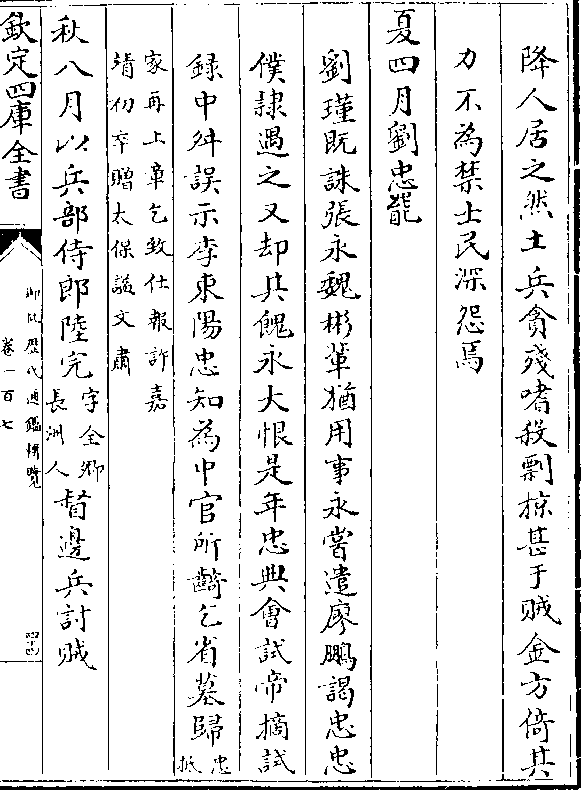 降人居之然土兵貪殘嗜殺剽掠甚于賊金方倚其
力不為禁士民深怨焉
夏四月劉忠罷
劉瑾既誅張永魏彬輩猶用事永嘗遣廖鵬謁忠忠
僕隸遇之又却其餽永大恨是年忠典會試帝摘試
録中舛誤示李東陽忠知為中官所齮乞省墓歸忠抵
家再上章乞致仕報許嘉
靖初卒贈太保諡文肅
秋八月以兵部侍郎陸完字全卿長洲人督邊兵討賊
欽定四庫全書
御批歷代通鑑輯覽
卷一百七
四十四